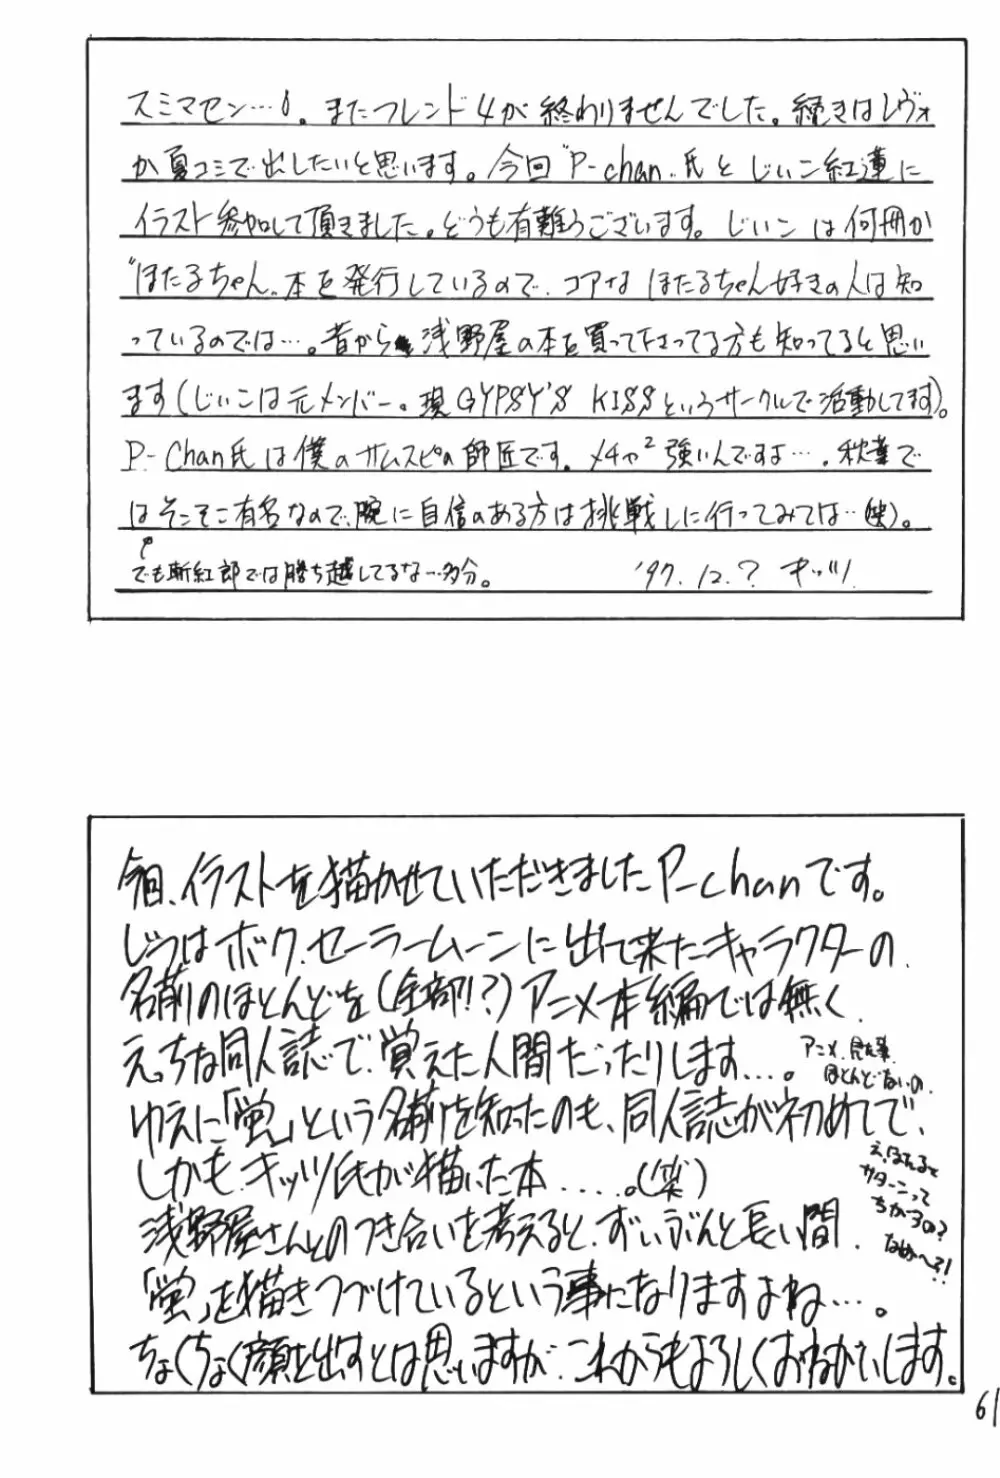 スミマセン…。またフレンド4が終わりませんでした。続きはレヴォ
か夏コミで出したいと思います。今回"P-chan"氏とじぃこ紅蓮に
イラスト参加して頂きました。どうも有難うございます。じぃこは何冊か
"ほたるちゃん"本を発行しているので、コアなほたるちゃん好きの人は知
っているのでは…。昔から浅野屋の本を買って下さってる方も知ってると思い
ます(じぃこは元メンバー。現GYPSY'S KISSというサークルで活動してます)。
P-Chan氏は僕のサムスピの師匠です。メチャ²強いんですよ…。秋葉で
はそこそこ有名なので、腕に自信のある方は挑戦しに行ってみては…(笑)。
でも斬紅郎では勝ち越してるな…多分。 '97.12.? キッツ
今回、イラストを描かせていただきましたP-chanです。
じつはボク、セーラームーンに出て来たキャラクターの
名前のほとんどを(全部!?)アニメ本編では無く
えっちな同人誌で覚えた人間だったりします…。
アニメ、見た事
ほとんどないの
ゆえに「蛍」という名前を知ったのも、同人誌が初めてで、
しかもキッツ氏が描いた本……。(笑)
え、ほたると
サターンって
ちがうの?
なめ〜?!
浅野屋さんとのつき合いを考えると、ずいぶんと長い間
「蛍」を描きつづけているという事になりますよね…。
ちょくちょく顔を出すとは思いますが、これからもよろしくおねがいします。
61